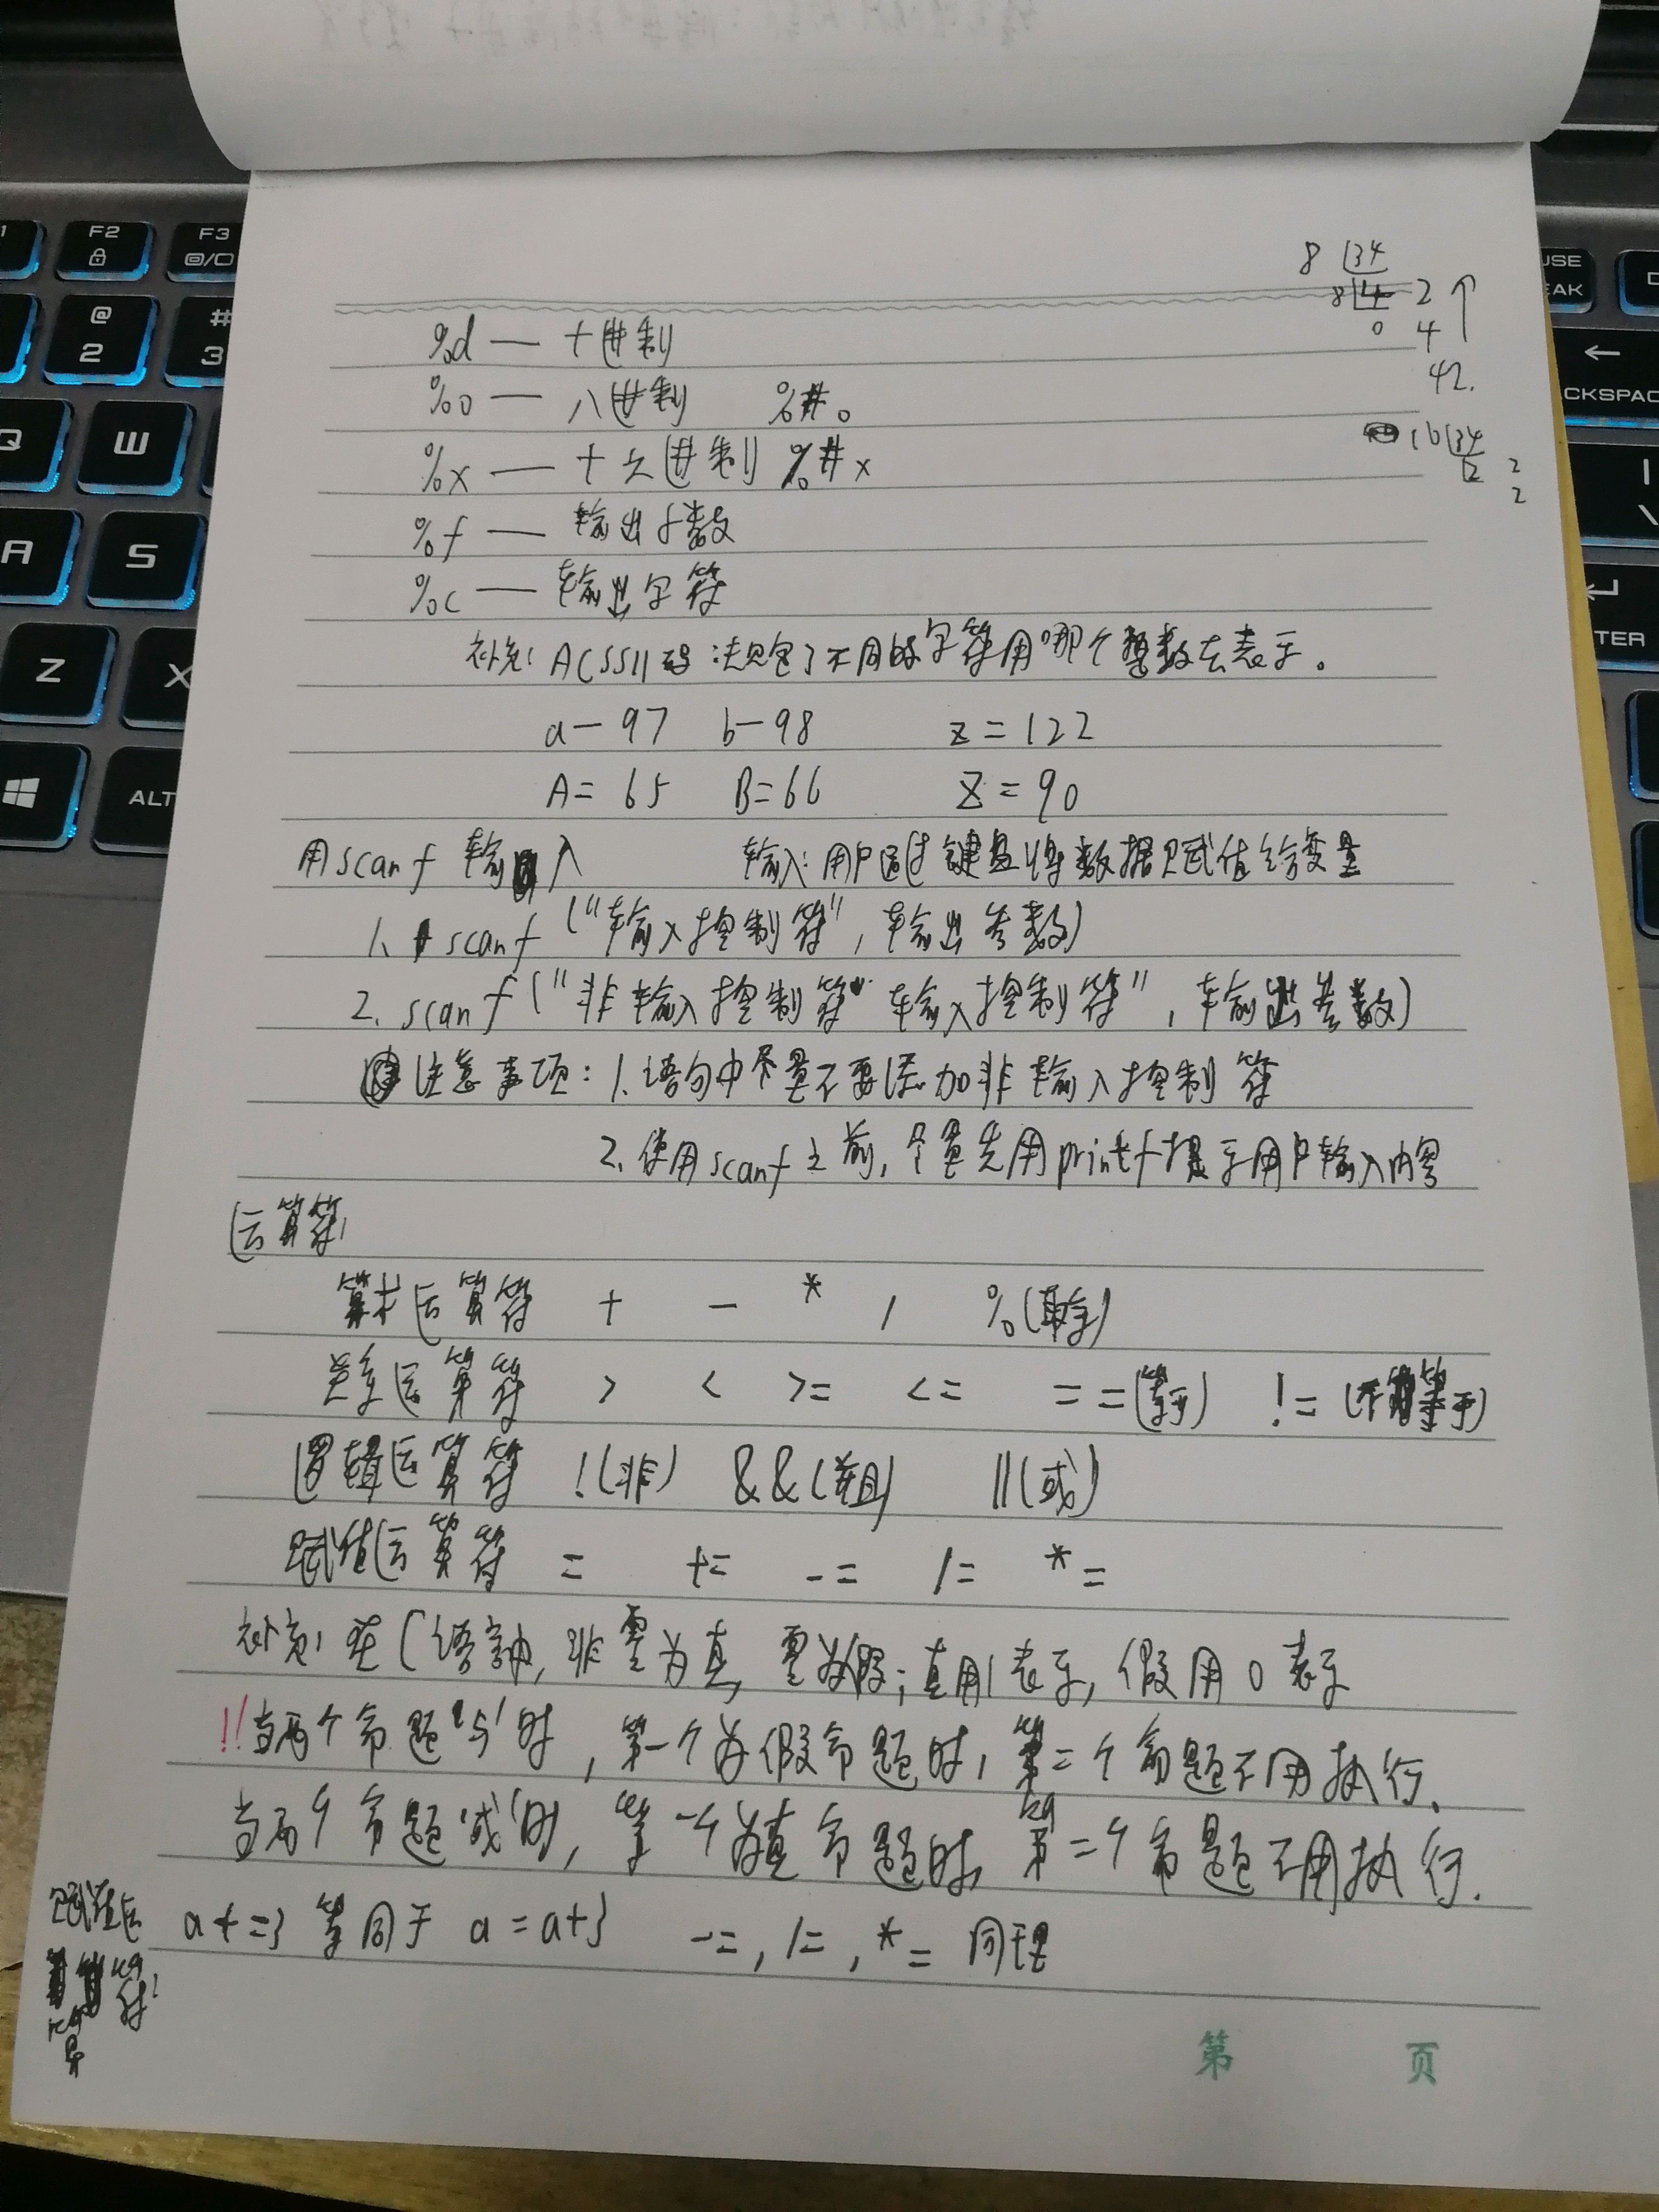 8 34
8 4 2
0 4
42.
16 34
2 2
2
%d — 十进制
%o — 八进制 %#o
%x — 十六进制 %#x
%f — 输出小数
%c — 输出字符
补充: ACSSII码:规定了不同的字符用哪个整数去表示。
a — 97 b — 98 z = 122
A = 65 B = 66 Z = 90
用scanf 输入 输入:用户通过键盘将数据赋值给变量
1. scanf ("输入控制符", 输出参数)
2. scanf ("非输入控制符 输入控制符", 输出参数)
注意事项: 1. 语句中尽量不要添加非输入控制符
2. 使用scanf之前,尽量先用printf提示用户输入内容
运算符:
算术运算符 + - * / %(取余)
关系运算符 > < >= <= ==(等于) !=(不等于)
逻辑运算符 !(非) &&(并且) ||(或)
赋值运算符 = += -= /= *=
补充: 在C语言中, 非零为真, 零为假; 真用1表示, 假用0表示
!! 当两个命题'与'时, 第一个为假命题时, 第二个命题不用执行.
当两个命题'或'时, 第一个为真命题时, 第二个命题不用执行.
赋值运算符: a+=3 等同于 a = a+3 -=, /=, *= 同理
第 页
F2
F3
@
2
#
3
Q
W
A
S
Z
X
ALT
USE
EAK
CKSPAC
TER